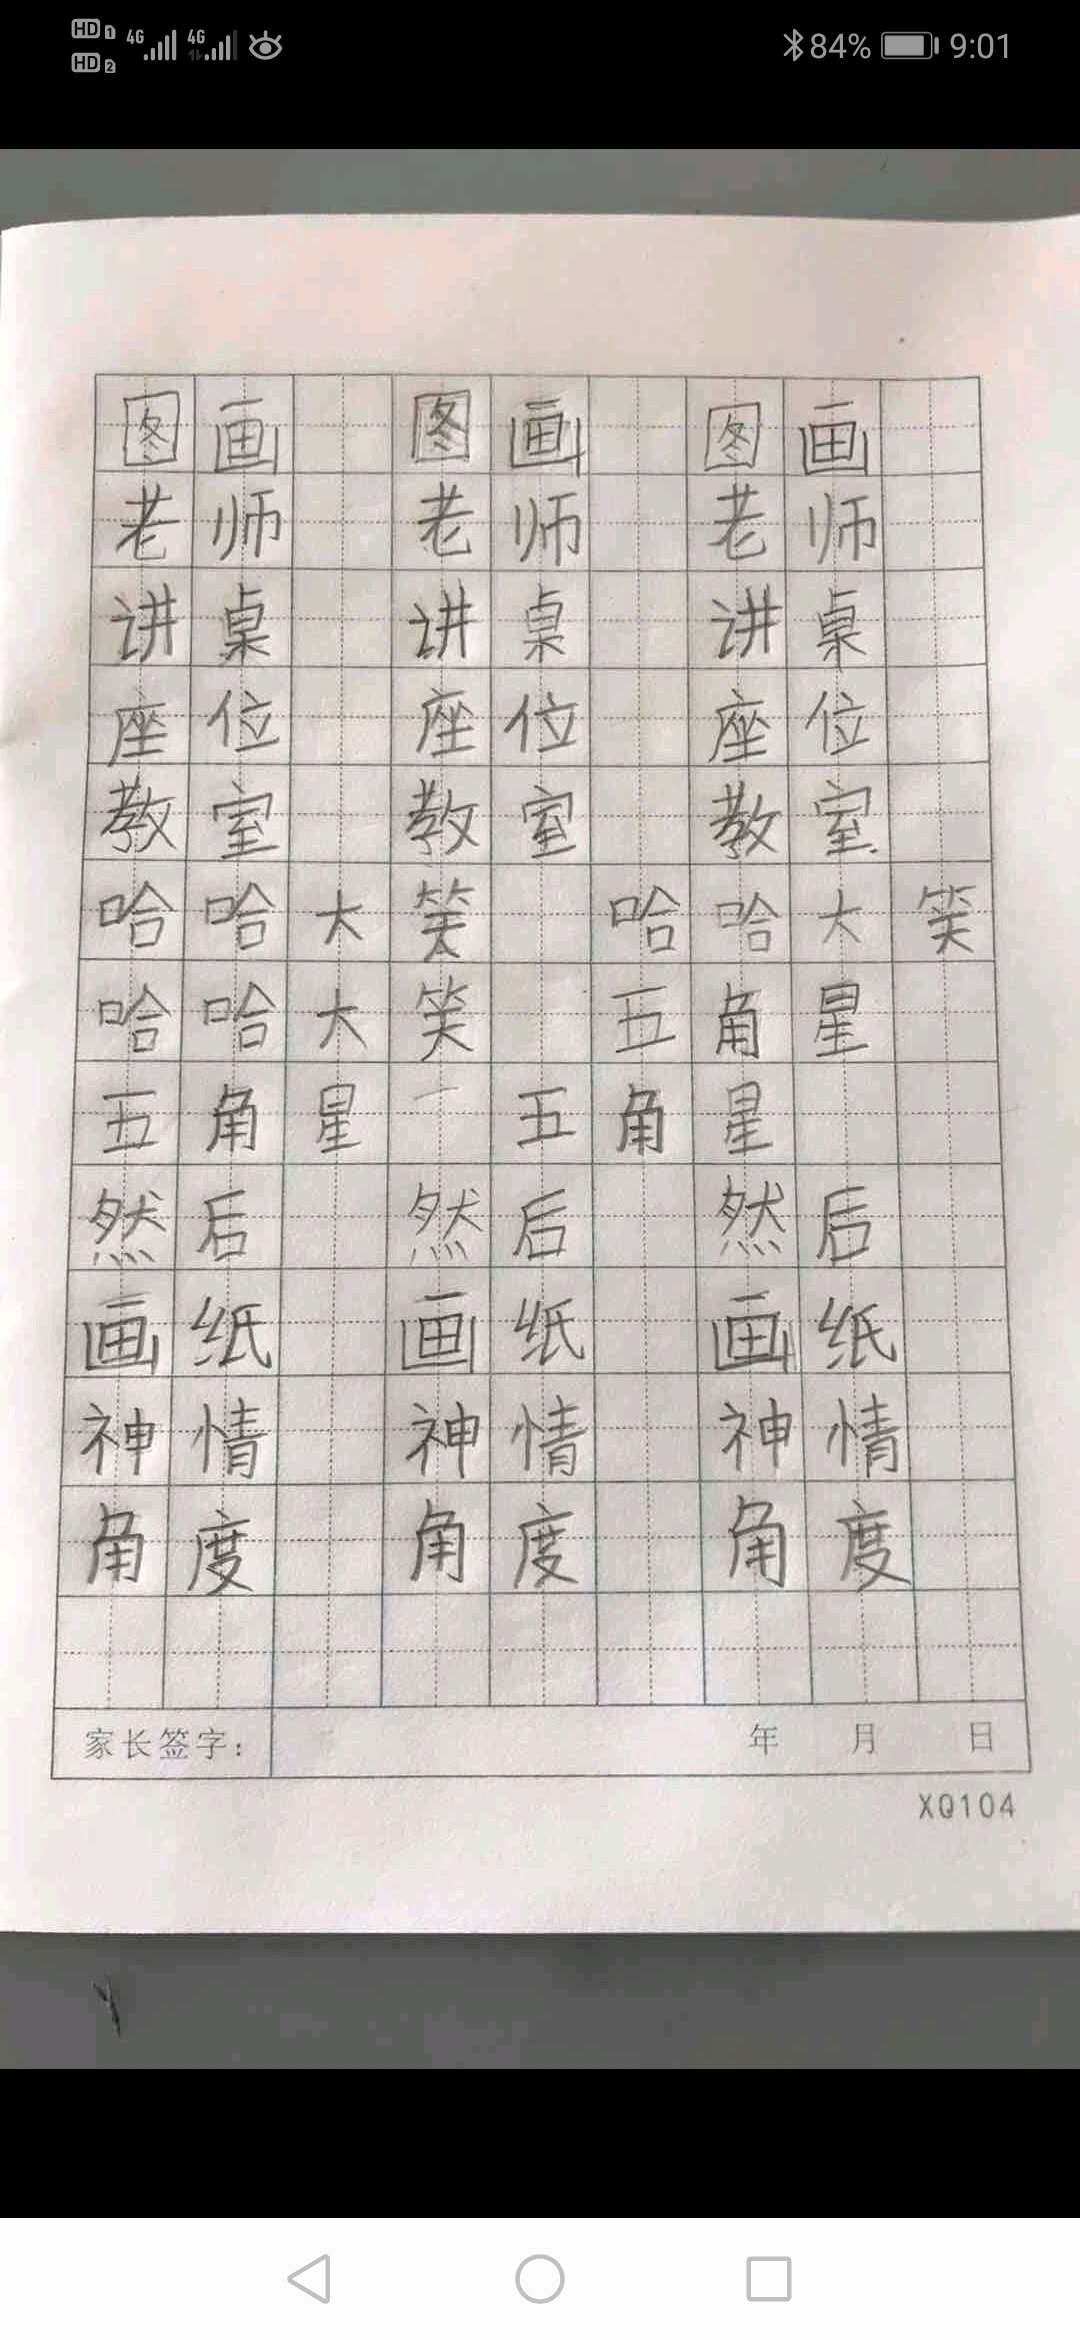 HD 1 4G 4G 84% 9:01
HD 2
图画 图画 图画
老师 老师 老师
讲桌 讲桌 讲桌
座位 座位 座位
教室 教室 教室
哈哈大笑 哈哈大笑
哈哈大笑 五角星
五角星 五角星
然后 然后 然后
画纸 画纸 画纸
神情 神情 神情
角度 角度 角度
家长签字： 年 月 日
XQ104